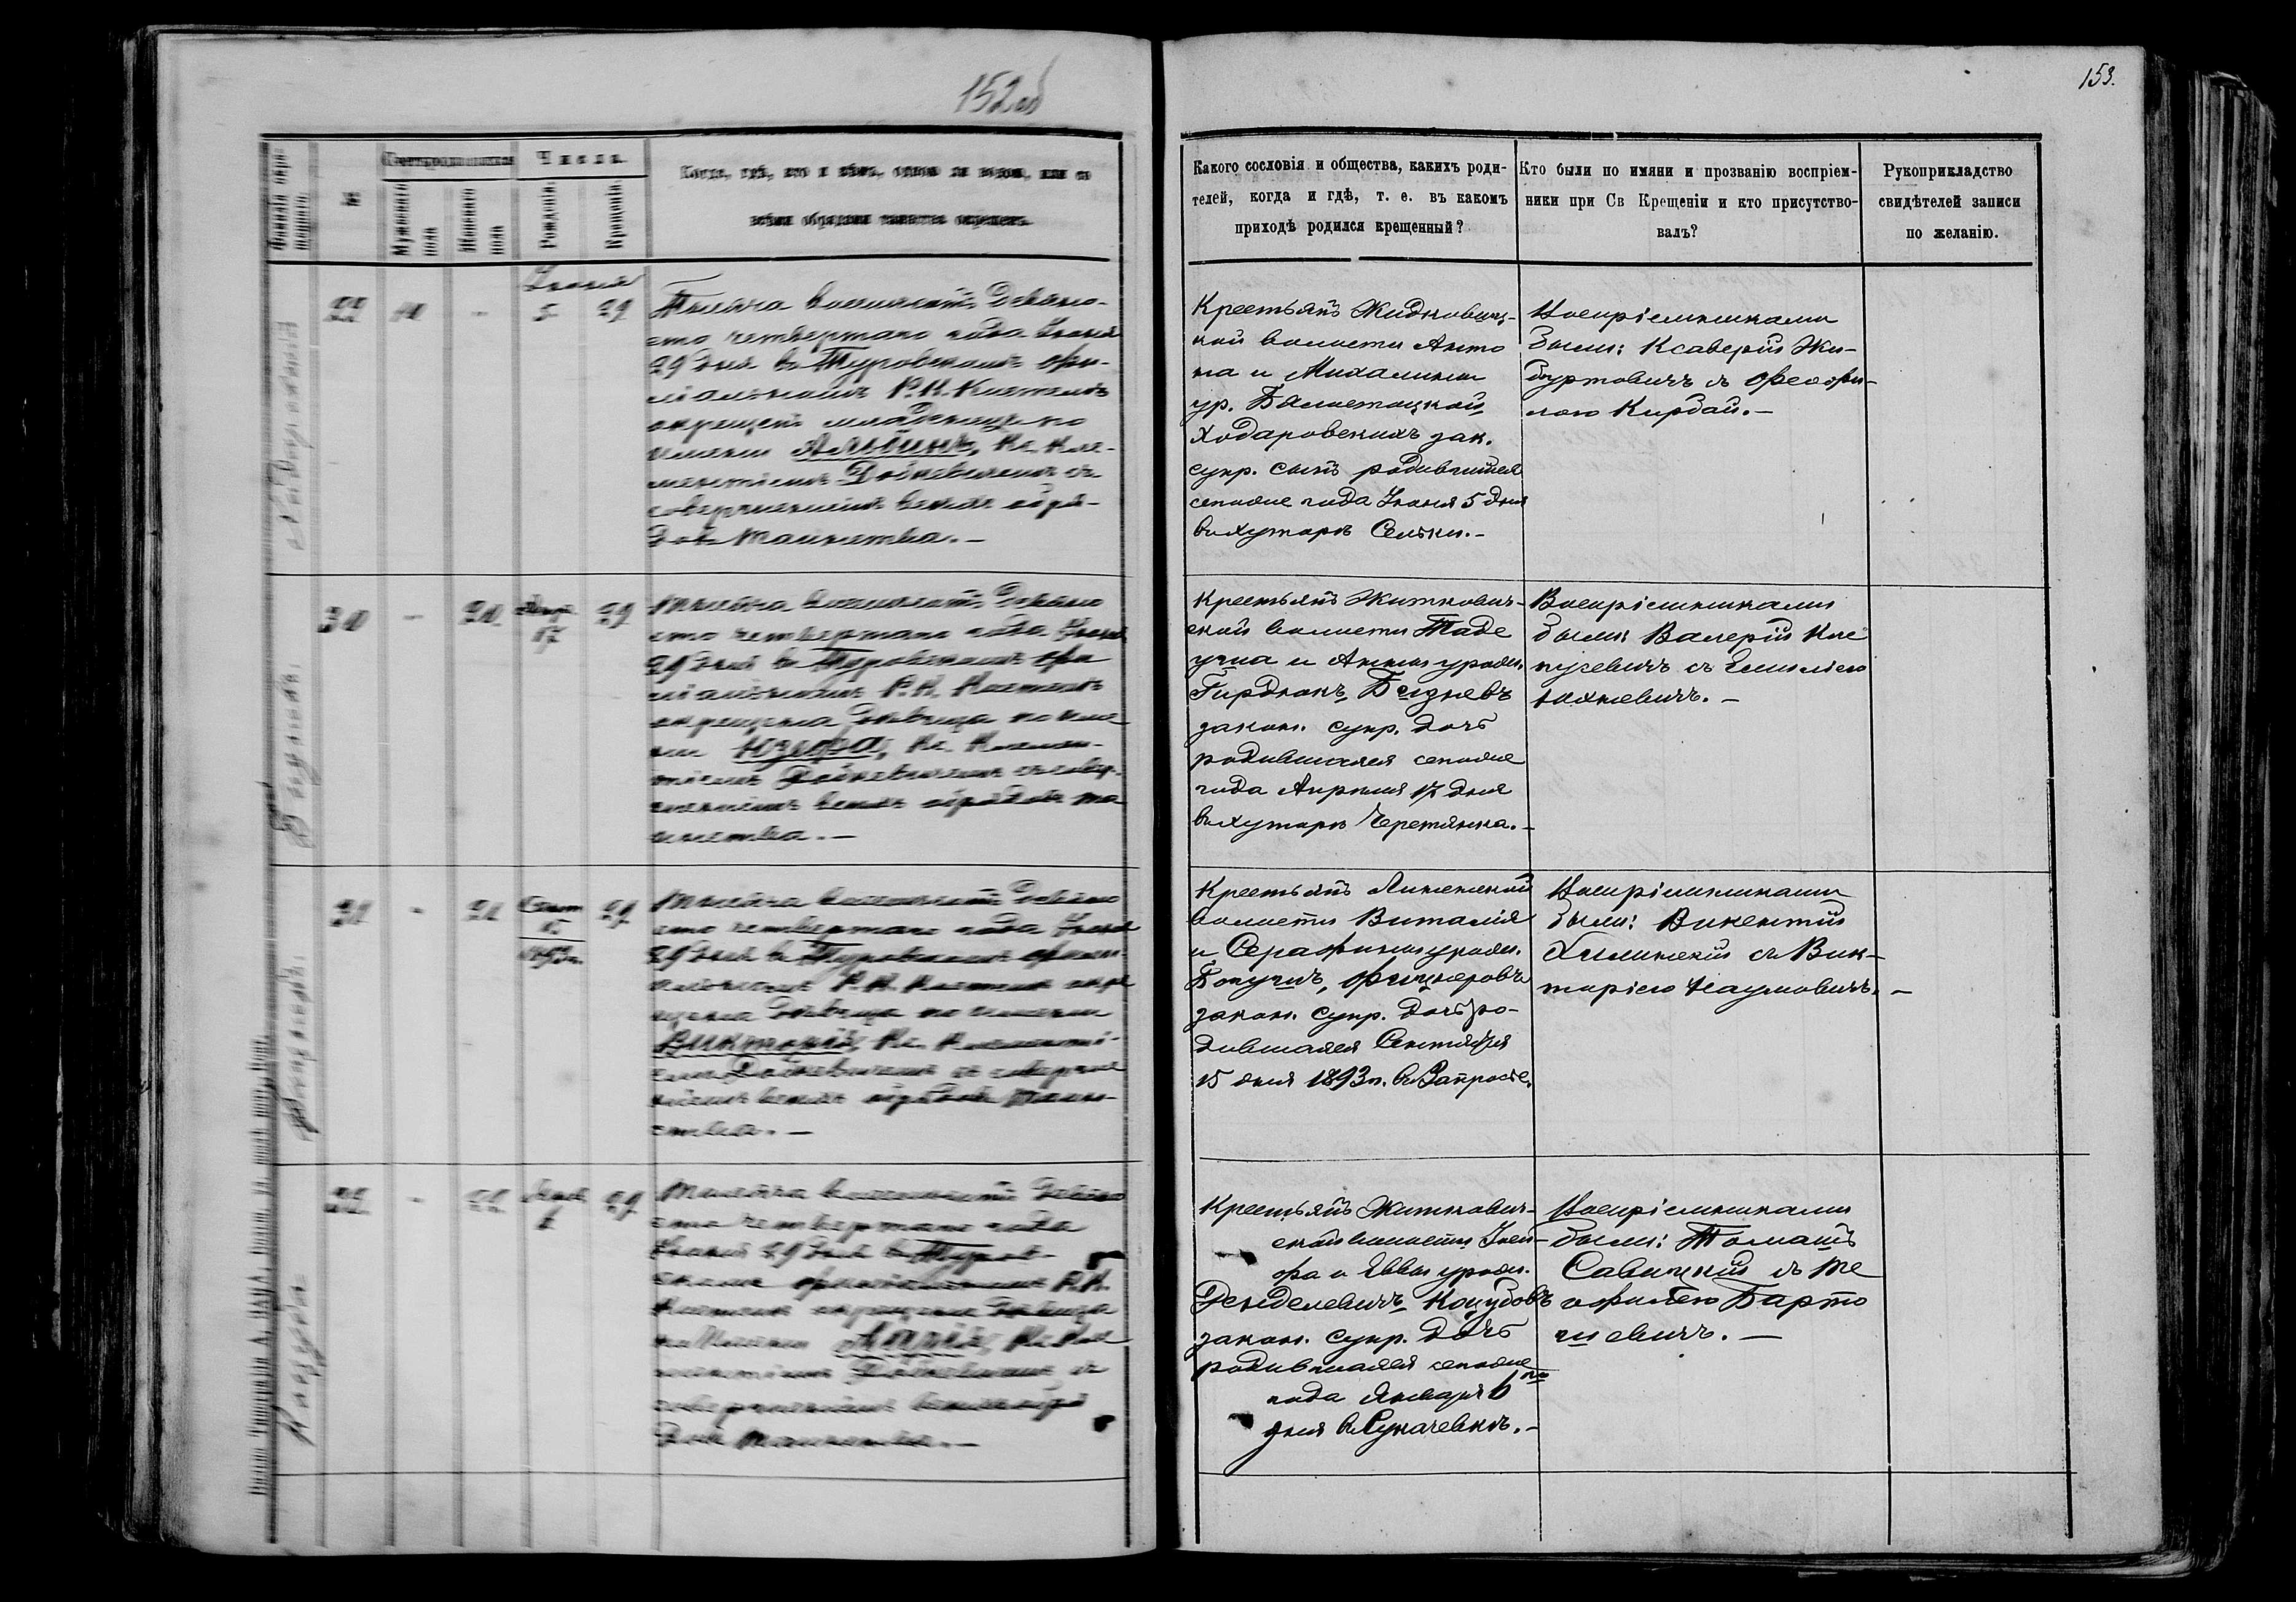 152об
Числа.
№
Мужескаго пола
Женскаго пола
Рожденія
Крещенія
Когда, гдѣ, кто и кѣмъ, одною ли водою, или со
всѣми обрядами таинства окрещенъ.
Іюня
29 10 - 5 29
Тысяча восемьсотъ девяно-
сто четвертаго года Іюня
29 дня въ Туровскомъ фи-
ліальномъ Р. К. Костелѣ
окрещенъ младенецъ по
имени Альбинъ, Кс. Кле-
ментіемъ съ
совершеніемъ всѣхъ обря-
довъ Таинства. –
30 - 20 Апр. 17 29
Тысяча восемьсотъ девяно
сто четвертаго года Іюня
29 дня въ Туровскомъ фи
ліальномъ Р. К. Костелѣ
окрещена дѣвица по име
ни Юзефа, Кс. Клемен-
тіемъ съ совер-
шеніемъ всѣхъ обрядовъ та
инства. –
31 - 21 Сент 15 1893 г. 29
Тысяча восемьсотъ девяно
сто четвертаго года Іюня
29 дня въ Туровскомъ филі-
альномъ Р. К. Костелѣ окре
щена дѣвица по имени
Викторія, Кс. Клементі-
емъ съ соверше
ніемъ всѣхъ обрядовъ Таин-
ства. –
32 - 22 29
Тысяча восемьсотъ девяно
сто четвертаго года
Іюня 29 дня въ Туров-
скомъ филіальномъ Р. К.
Костелѣ окрещена дѣвица
по имени Марія, Кс. Кле
ментіемъ съ
совершеніемъ всѣхъ обря
довъ Таинства. –
Коцуба
153.
Какого сословія и общества, какихъ роди-
телей, когда и гдѣ, т. е. въ какомъ
приходѣ родился крещенный?
Кто были по имяни и прозванію воспріем-
ники при Св Крещеніи и кто присутство-
валъ?
Рукоприкладство
свидѣтелей записи
по желанію.
Крестьянъ Жидковиц-
кой волости Анто
на и Михалины
ур.
Ходаровскихъ зак.
супр. сынъ родившійся
сегоже года Іюня 5 дня
въ хуторѣ Сельки. –
Воспріемниками
были: Ксаверій Жи-
буртовичъ съ Феофи-
лею Кирбай. –
Крестьянъ Житкович-
ской волости Таде
уша и Анны урожд.
Гирдюкъ,
закон. супр. дочь
родившаяся сегоже
года Апрѣля 17 дня
въ хуторѣ Черетянка. –
Воспріемниками
были: Валерій Кле
съ Емиліею
Юхневичъ. –
Крестьянъ
волости Виталія
и Серафины урожд.
Богушъ, Фицнеровъ
закон. супр. дочь ро-
дившаяся Сентября
15 дня 1893 г. въ
Воспріемниками
были: Викентій
Хилинскій съ Вик-
торіею Наумовичъ. –
Крестьянъ Житкович-
ской волости Іоси-
фа и Еввы урожд.
Денделевичъ, Коцубовъ
закон. супр. дочь
родившаяся сегоже
года Января
дня въ Сукачевкѣ. –
Воспріемниками
были: Томашъ
Савицкій съ Те
офилею Барто
шевичъ. –